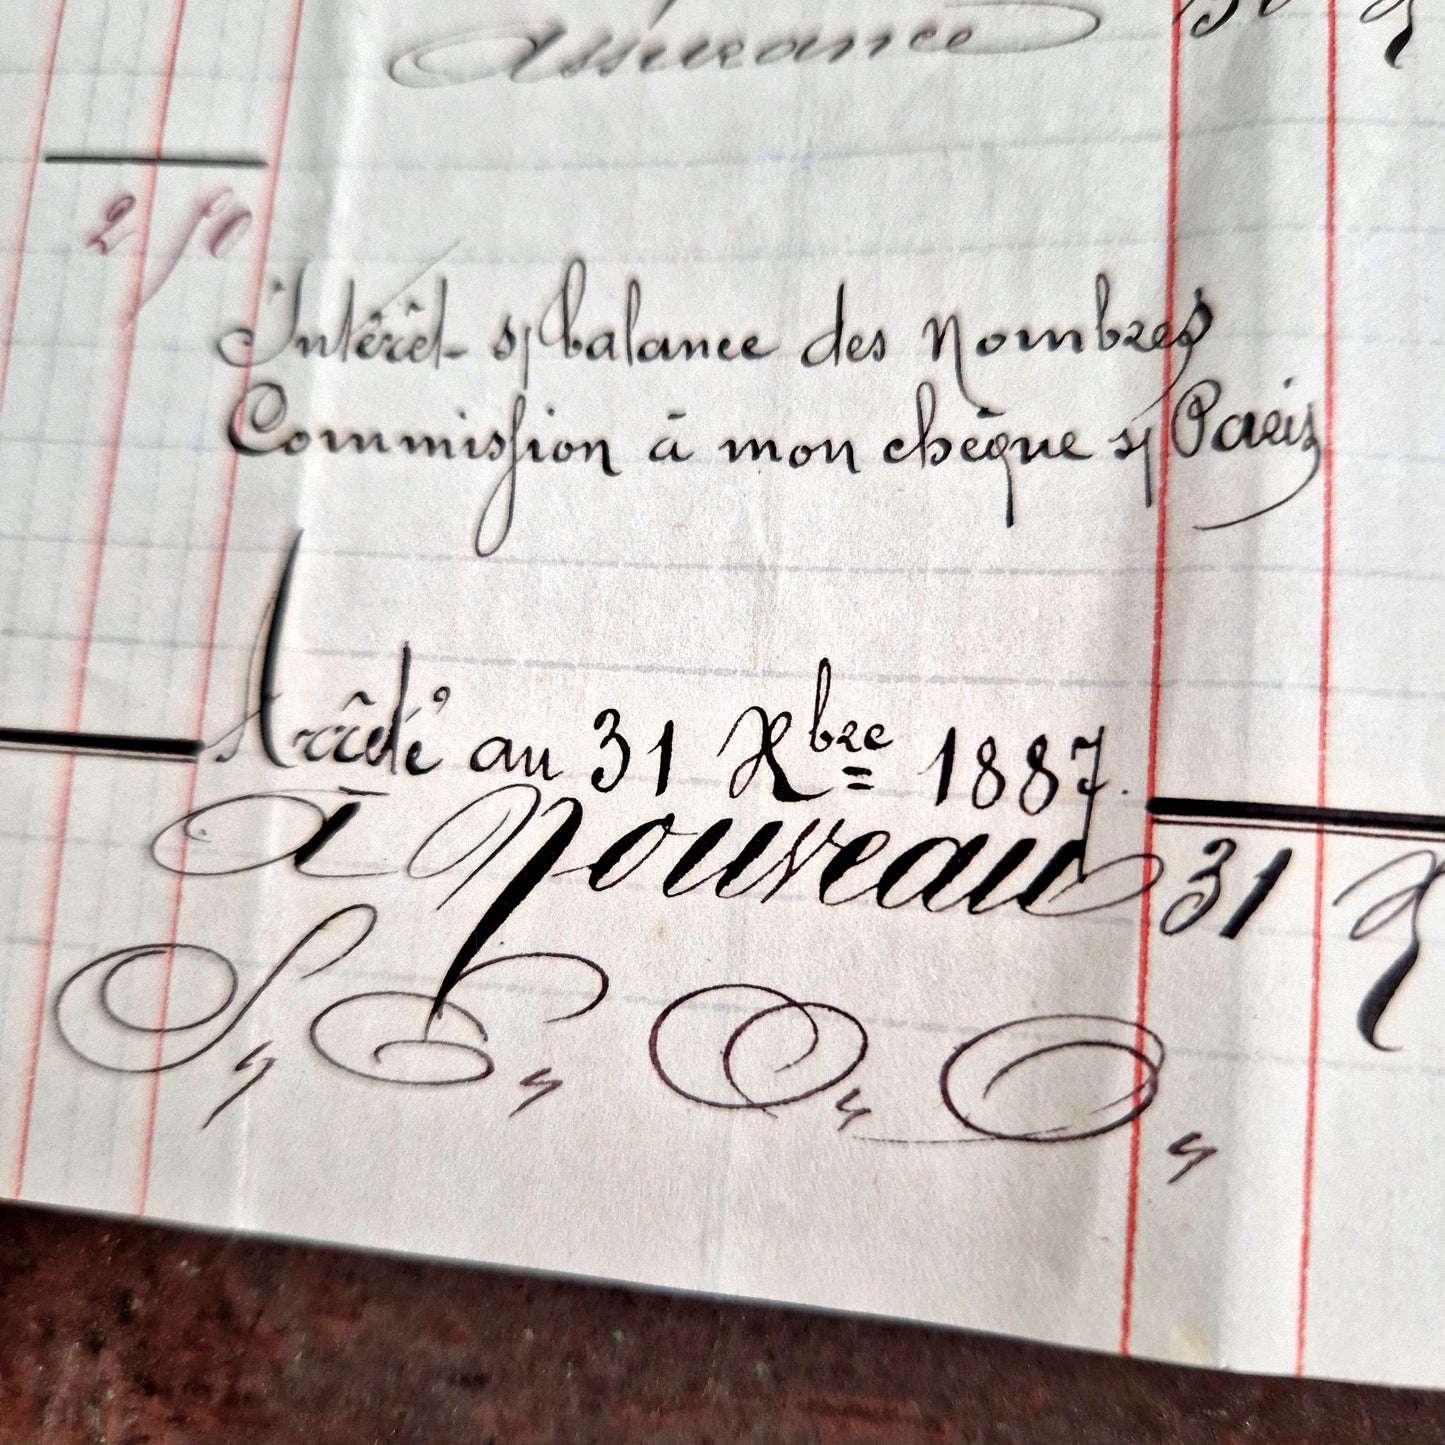 assurance
2 50
Intérêt s/ balance des Nombres
Commission à mon chèque s/ Paris
Arrêté au 31 Xbre 1887.
à Nouveau 31 X
S, E, O, O,